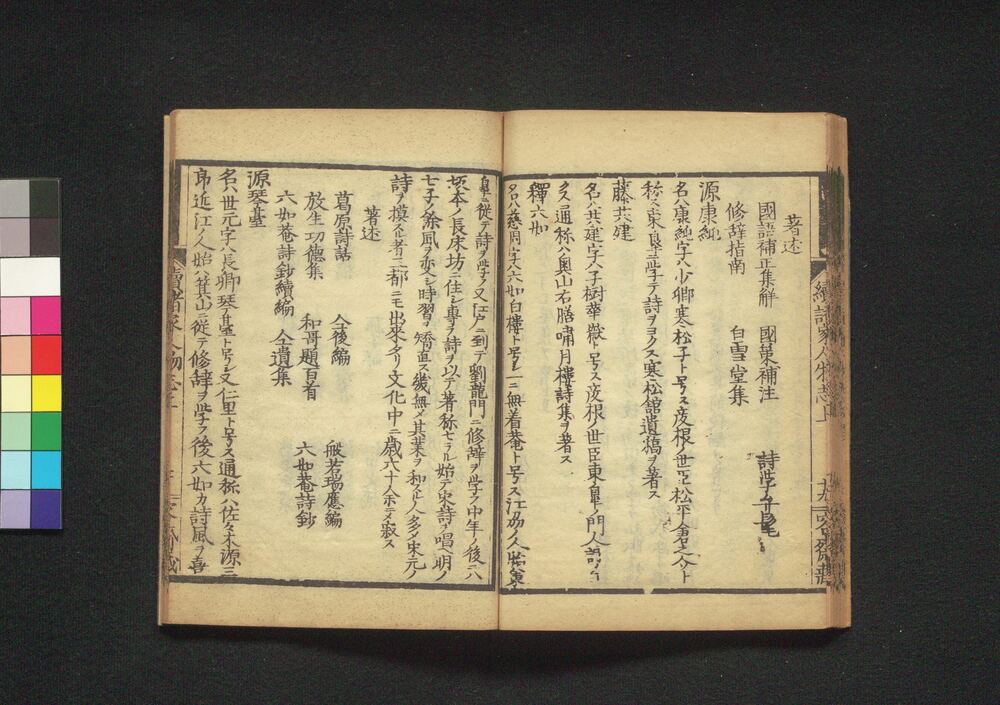 著述
國語補正集解 國策補注 詩學
修辞指南 白雪堂集
源康純
名ハ康純字ハ少卿寒松子ト号ス彦根ノ世臣松平倉之介ト
称ス東皐ニ学テ詩ヲヨクス寒松館遺稿ヲ著ス
藤共建
名ハ共建字ハ子樹華嶽ト号ス彦根ノ世臣東皐ノ門人詩
クス通称ハ奥山右膳嘯月樓詩集ヲ著ス
釋六如
名ハ慈周字ハ六如白樓ト号シ一ニ無着菴ト号ス江州ノ人始東
皐ニ從テ詩ヲ学ヒ又江戸ニ到テ劉龍門ニ修辞ヲ学フ中年ノ後ニハ
坂本ノ長床坊ニ住シ専ラ詩ヲ以テ著称セラル始テ宋詩ヲ唱ヘ明ノ
七子ノ餘風ヲ変シ時習ヲ矯直ス幾無メ其業ヲ和スル人多メ宋元ノ
詩ヲ模スル者三都ニモ出來タリ文化中ニ歳六十八ニテ寂ス
著述
葛原詩話 仝後編 般若瑒應編
放生功徳集 和哥題百首 六如菴詩鈔
六如菴詩鈔續編 仝遺集
源琴臺
名ハ世元字ハ長卿琴臺ト号シ又仁里ト号ス通称ハ佐々木源三
郎近江ノ人始ハ箕山ニ従テ修辞ヲ学フ後六如カ詩風ヲ喜
續諸家人物志上